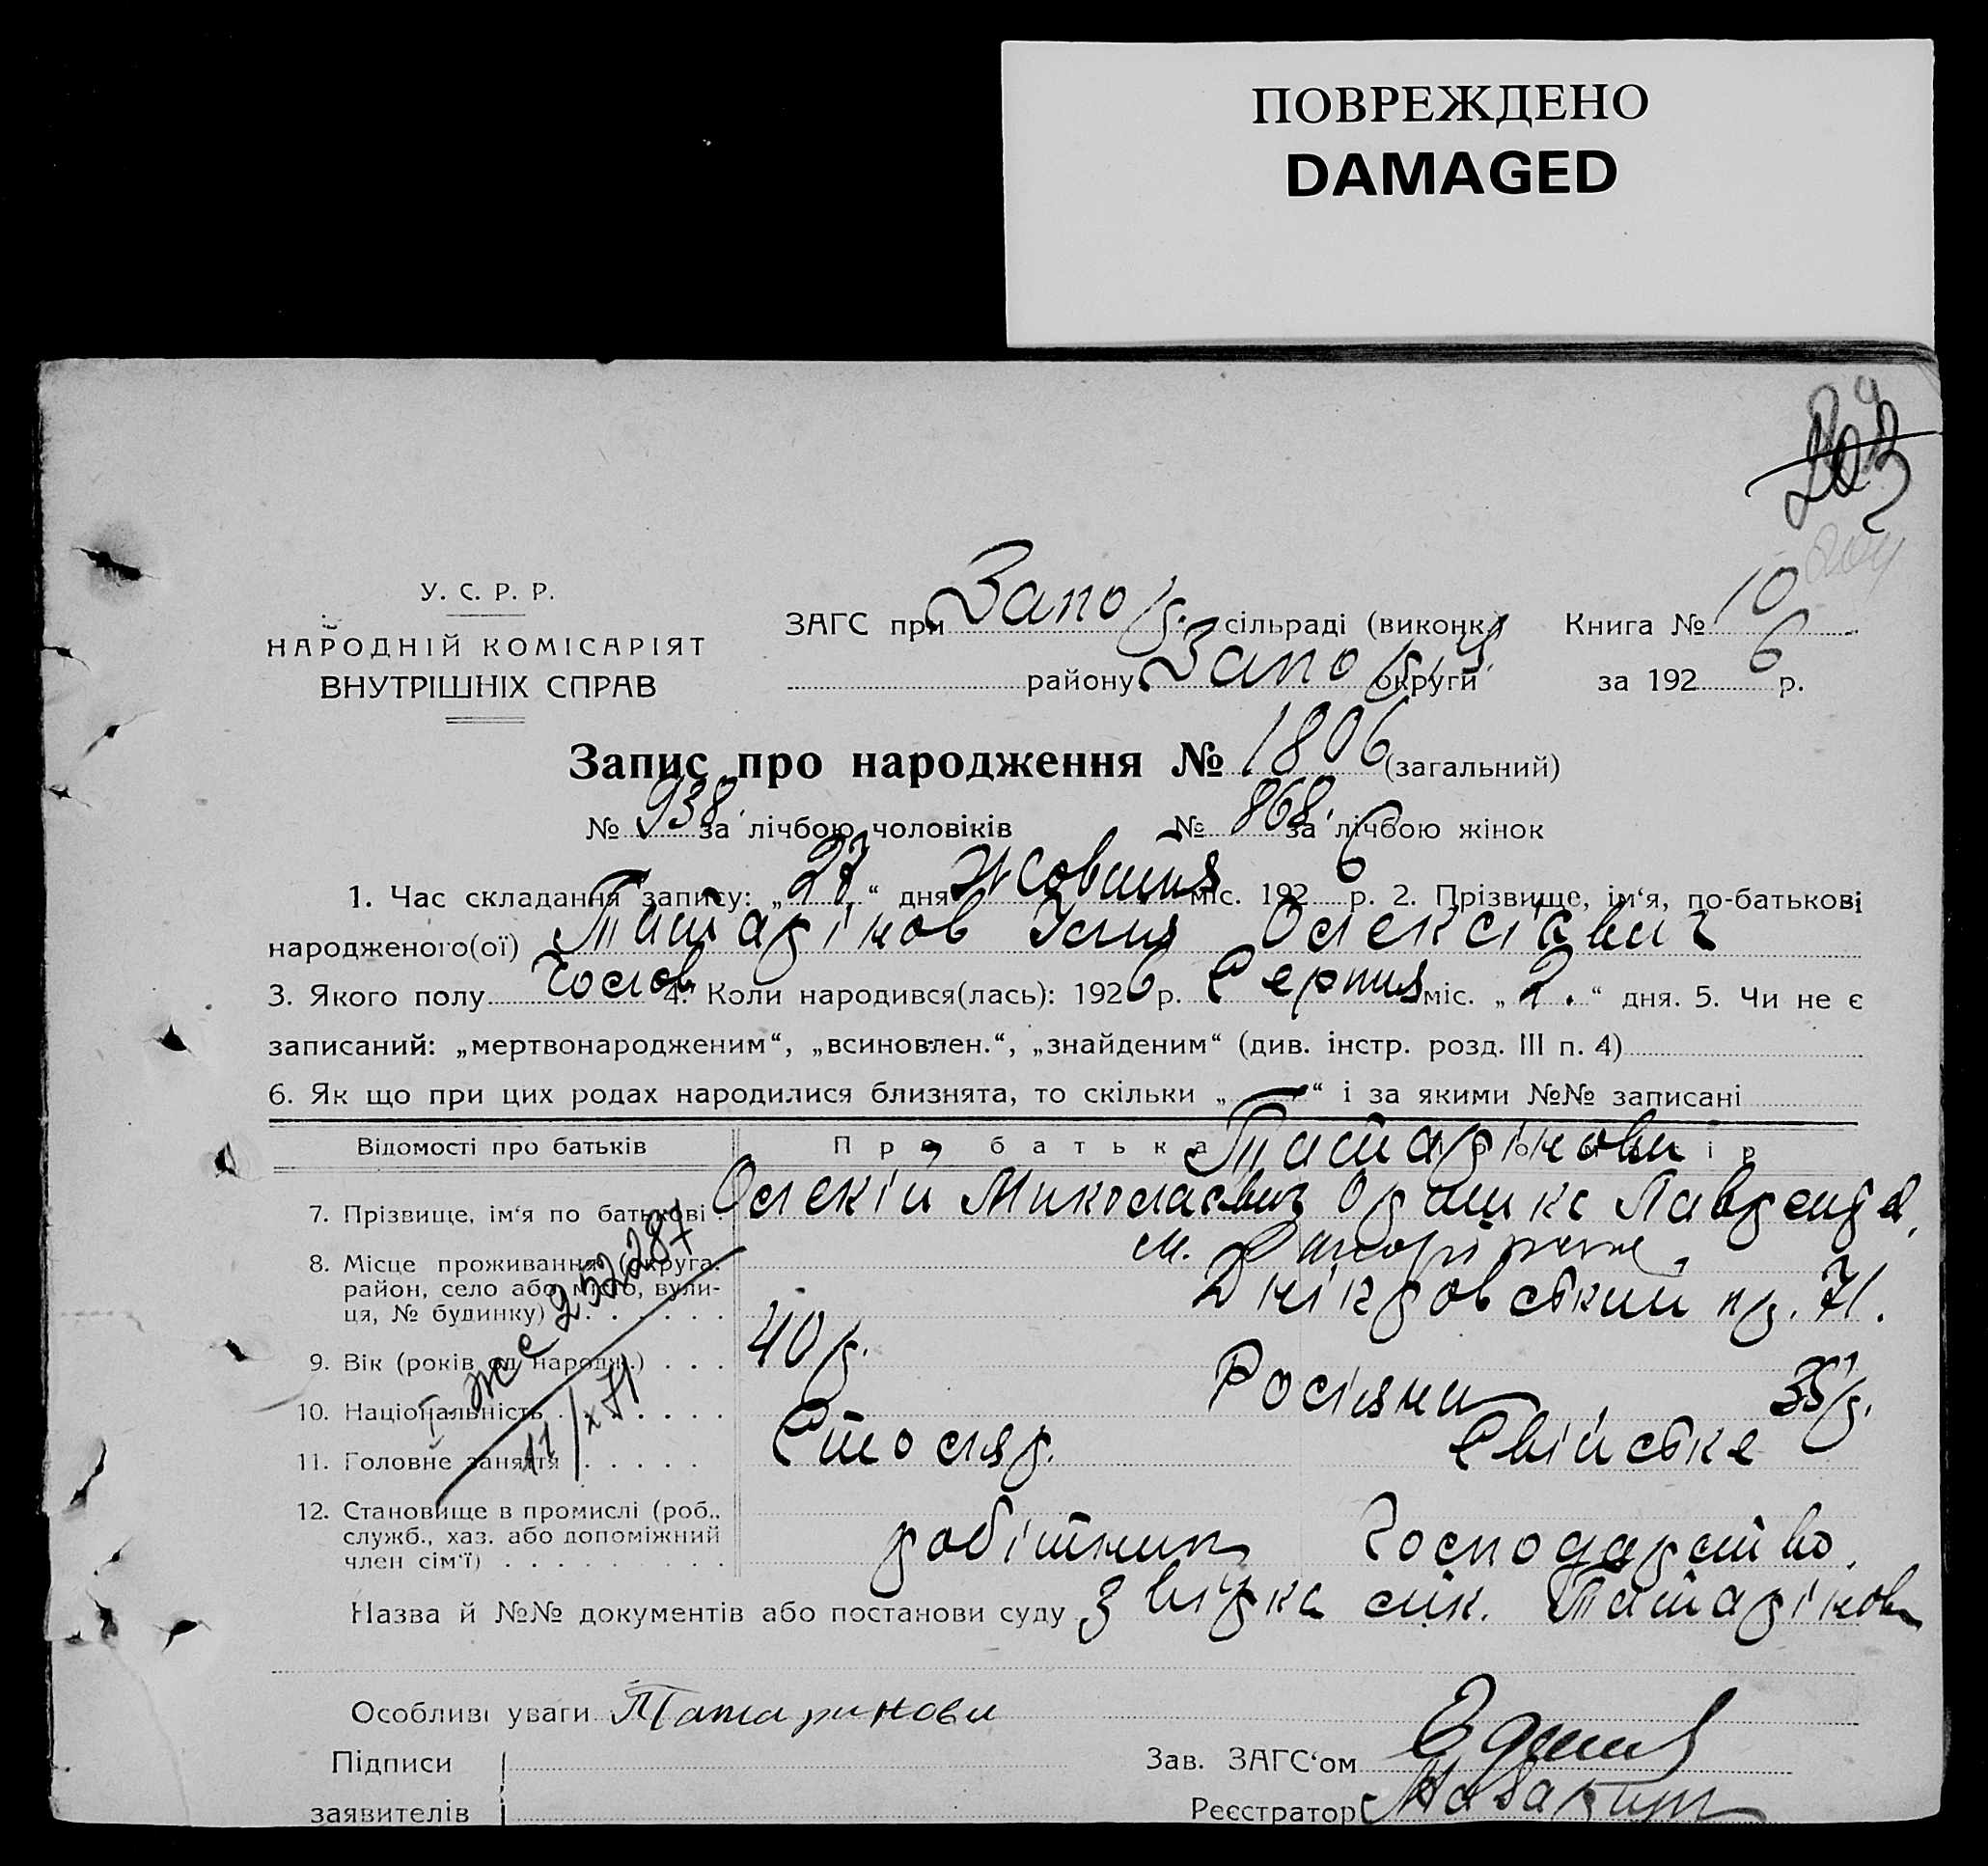 ПОВРЕЖДЕНО
DAMAGED
У. С. Р. Р.
НАРОДНІЙ КОМІСАРІЯТ
ВНУТРІШНІХ СПРАВ
ЗАГС при Запор. сільраді (виконк.)
району Запор округи
Книга № 10
за 1926 р.
Запис про народження № 1806 (загальний)
№ 938 за лічбою чоловіків № 868 за лічбою жінок
1. Час складання запису: „27“ дня Жовтня міс. 1926 р. 2. Прізвище, ім‘я, по-батькові
народженого(ої) Татарінов Ілля Олексієвич
3. Якого полу Чолов 4. Коли народився(лась): 1926 р. Серпня міс. „2.“ дня. 5. Чи не є
записаний: „мертвонародженим“, „всиновлен.“, „знайденим“ (див. інстр. розд. III п. 4)
6. Як що при цих родах народилися близнята, то скільки „—“ і за якими №№ записані
Відомості про батьків Про батька Татарінови
7. Прізвище, ім‘я по батькові Олексій Миколаєвич Лаврент.
8. Місце проживання (округа, район, село або місто, вули-
ця, № будинку) м. Запоріжжє,
пр. 71.
9. Вік (років од народж.) 40 р. 35 р.
10. Національність Росіяни
11. Головне заняття Столяр. Свійське
12. Становище в промислі (роб.,
служб., хаз. або допоміжний
член сім‘ї) робітник Господарство.
Назва й №№ документів або постанови суду Татарінов
Особливі уваги Татаринови
Підписи
заявителів
Зав. ЗАГС‘ом
Реєстратор